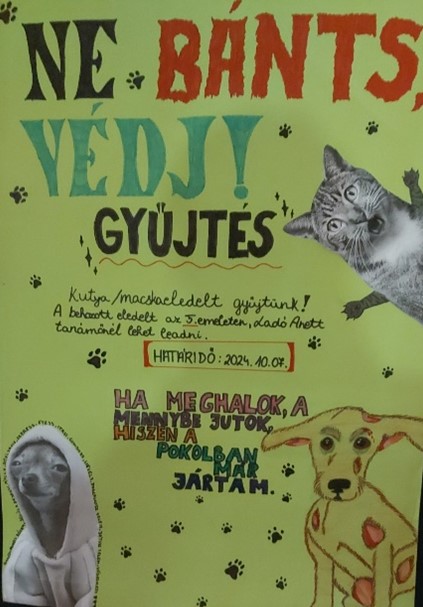 NE BÁNTS,
VÉDJ!
GYŰJTÉS
Kutya/macskaeledelt gyűjtünk!
A behozott eledelt az 3. emeleten, Ladó Anett
tanárnőnél lehet leadni.
HATÁRIDŐ: 2024. 10. 07.
HA MEGHALOK, A
MENNYBE JUTOK,
HISZEN A
POKOLBAN
MÁR
JÁRTAM.